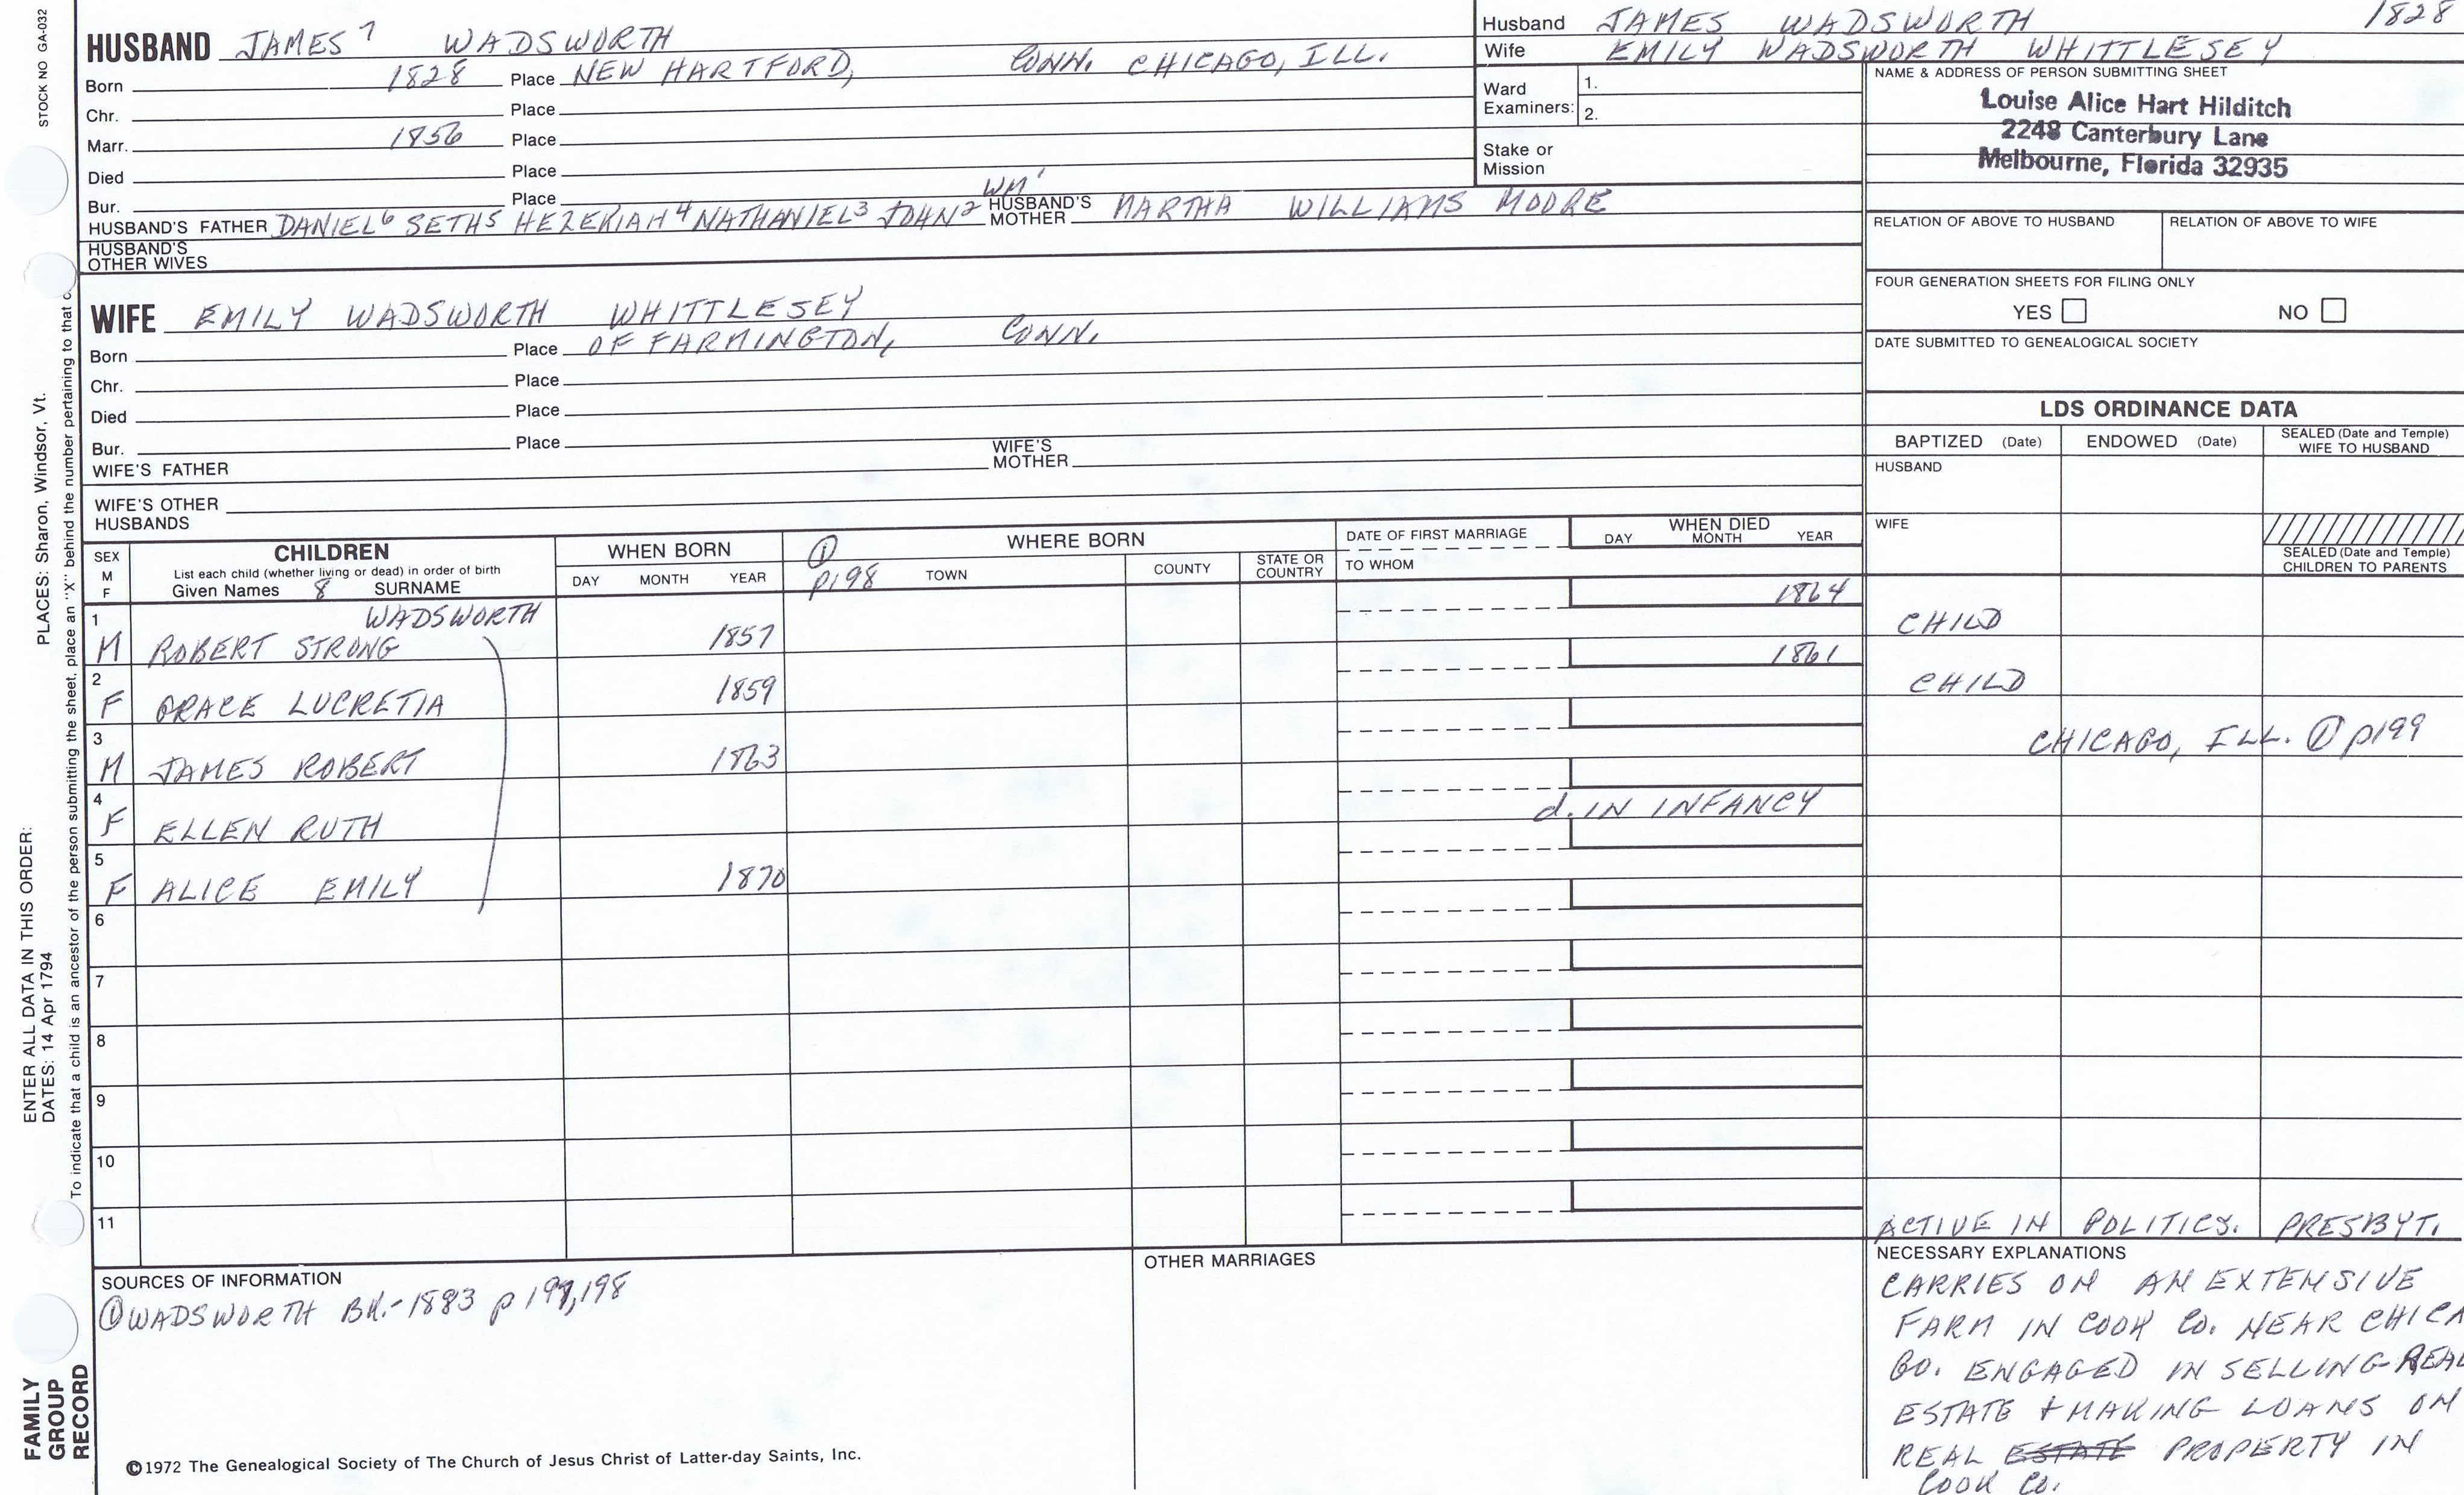 STOCK NO GA-032
HUSBAND JAMES 7 WADSWORTH
Born 1828 Place NEW HARTFORD, CONN. CHICAGO, ILL.
Chr. Place
Marr. 1856 Place
Died Place
Bur. Place
WM 1
HUSBAND'S FATHER DANIEL 6 SETH 5 HEZEKIAH 4 NATHANIEL 3 JOHN 2 HUSBAND'S MOTHER MARTHA WILLIAMS MOORE
HUSBAND'S OTHER WIVES
WIFE EMILY WADSWORTH WHITTLESEY
Born Place OF FARMINGTON, CONN.
Chr. Place
Died Place
Bur. Place
WIFE'S FATHER WIFE'S MOTHER
WIFE'S OTHER HUSBANDS
Husband JAMES WADSWORTH 1828
Wife EMILY WADSWORTH WHITTLESEY
Ward Examiners: 1.
2.
Stake or Mission
NAME & ADDRESS OF PERSON SUBMITTING SHEET
Louise Alice Hart Hilditch
2248 Canterbury Lane
Melbourne, Florida 32935
RELATION OF ABOVE TO HUSBAND RELATION OF ABOVE TO WIFE
FOUR GENERATION SHEETS FOR FILING ONLY
YES NO
DATE SUBMITTED TO GENEALOGICAL SOCIETY
LDS ORDINANCE DATA
BAPTIZED (Date) ENDOWED (Date) SEALED (Date and Temple) WIFE TO HUSBAND
HUSBAND
WIFE
SEALED (Date and Temple) CHILDREN TO PARENTS
SEX M F
CHILDREN
List each child (whether living or dead) in order of birth
Given Names 8 SURNAME
WHEN BORN
DAY MONTH YEAR
① WHERE BORN
p198 TOWN COUNTY STATE OR COUNTRY
DATE OF FIRST MARRIAGE
TO WHOM
WHEN DIED
DAY MONTH YEAR
WADSWORTH
1 M ROBERT STRONG 1857 1864 CHILD
2 F GRACE LUCRETIA 1859 1861 CHILD
3 M JAMES ROBERT 1863 CHICAGO, ILL. ① p199
4 F ELLEN RUTH d. IN INFANCY
5 F ALICE EMILY 1870
6
7
8
9
10
11
ACTIVE IN POLITICS. PRESBYT.
SOURCES OF INFORMATION
① WADSWORTH BK.-1883 p 198
OTHER MARRIAGES
NECESSARY EXPLANATIONS
CARRIES ON AN EXTENSIVE
FARM IN COOK CO. NEAR CHICA
GO. ENGAGED IN SELLING REAL
ESTATE + MAKING LOANS ON
REAL ESTATE PROPERTY IN
COOK CO.
©1972 The Genealogical Society of The Church of Jesus Christ of Latter-day Saints, Inc.
FAMILY GROUP RECORD
ENTER ALL DATA IN THIS ORDER:
DATES: 14 Apr 1794
PLACES: Sharon, Windsor, Vt.
To indicate that a child is an ancestor of the person submitting the sheet, place an "X" behind the number pertaining to that c